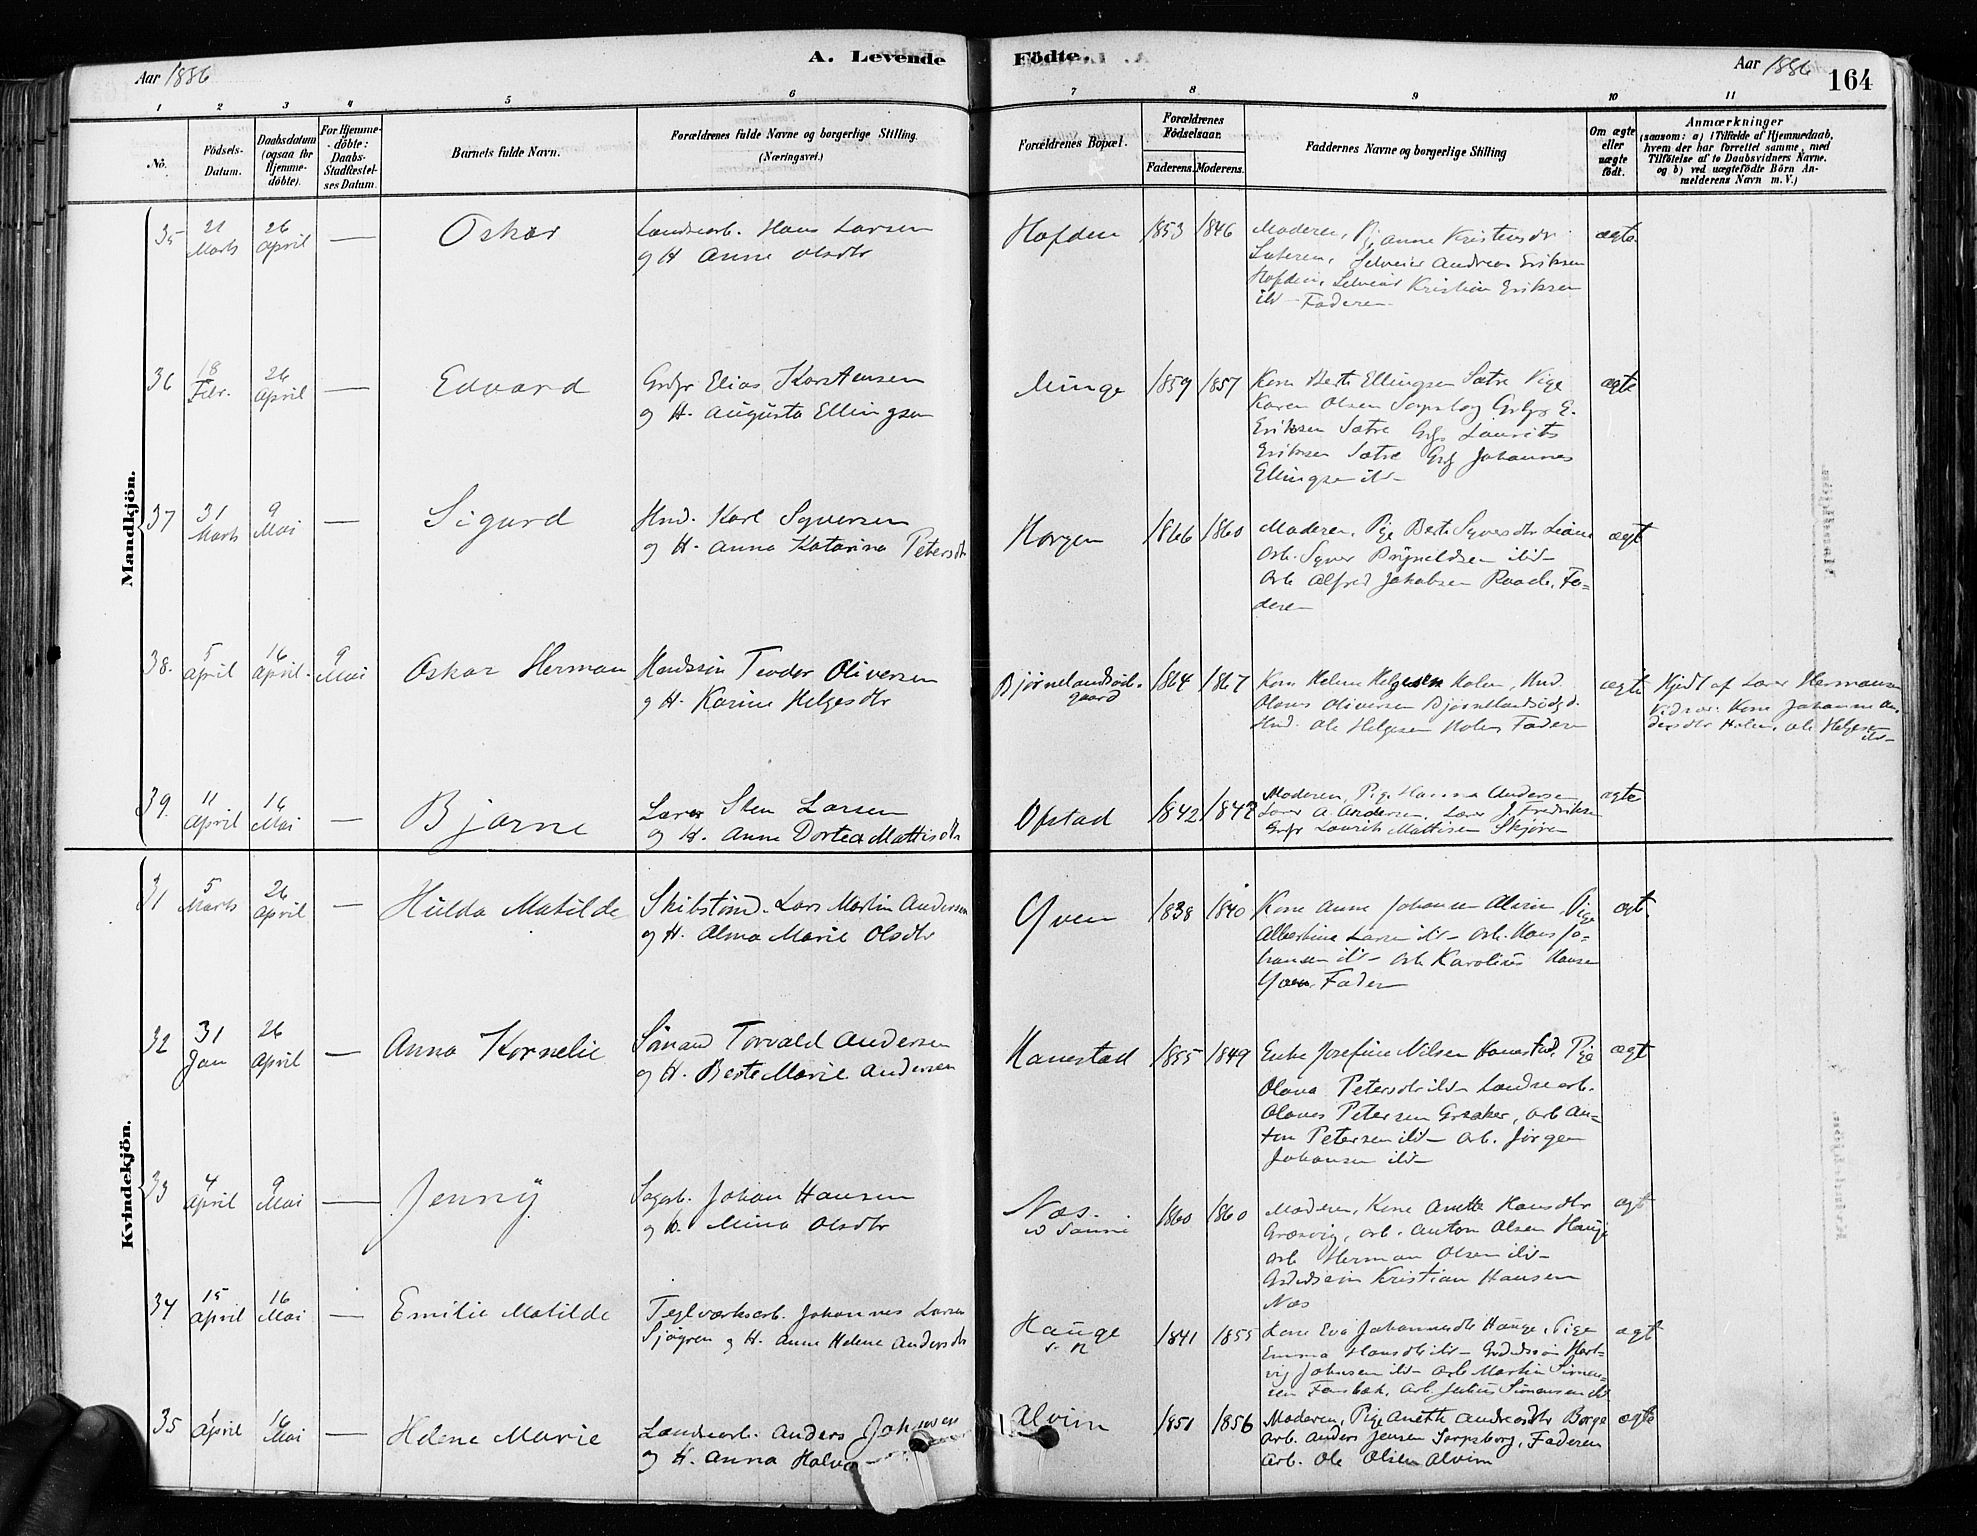 A. Levende
Födte.
Aar 1886
Aar 1886
164
1 2 3 4 5 6 7 8 9 10 11
No.
Födsels-
Datum.
Daabsdatum
(ogsaa for
Hjemme-
döbte).
For Hjemme-
döbte:
Daabs-
Stadfæstel-
ses Datum.
Barnets fulde Navn.
Forældrenes fulde Navne og borgerlige Stilling.
(Næringsvei.)
Forældrenes Bopæl.
Forældrenes
Födselsaar.
Faderens.
Moderens.
Faddernes Navne og borgerlige Stilling
Om ægte
eller
uægte
födt.
Anmærkninger
(saasom: a) i Tilfælde af Hjemmedaab,
hvem der har forrettet samme, med
Tilföielse af to Daabsvidners Navne.
og b) ved uægtefödte Börn An-
melderens Navn m. V.)
Mandkjön.
35 21 Marts 26 April — Oskar
Landarb. Hans Larsen
og H. Anne Olsdtr
Hofden 1853 1846
Moderen, Pige Anne Kristensdtr
Andreas Eriksen
Hofden, Kristian Eriksen
ibd — Faderen
ægte
36 18 Febr. 26 April — Edvard
Grdbr Elias Karstensen
og H. Augusta Ellingsen
Minge 1859 1857
Kone Berte Ellingsen Sætre Pige
Karen Olsen Sarpsborg Grbr E.
Eriksen Sætre Grbr Laurits
Eriksen Sætre Grbr Johannes
Ellingsen ibd —
ægte
37 31 Marts 9 Mai — Sigurd
Hmd. Karl Syversen
og H. Anna Katarina Petersdtr
Horgen 1866 1860
Moderen, Pige Berte Syversdtr
Arb. Syver Brynildsen ibd —
Arb Alfred Jakobsen Raade, Fa-
deren
ægt
38. 5 April 16 April 9 Mai Oskar Herman
Teodor Oliversen
og H. Karine Helgesdtr
Bjørnelandsød-
gaard
1864 1867
Kone Helene Helgesen Holen, Hmd.
Olaves Oliversen Bjørnelandsødgd.
Hmd. Ole Helgesen Holen Faderen
ægte
Hjdt af Lærer Hermansen
Vidner: Kone Johanne An-
dersdtr Holen, Ole Helgesen
ibd —
39. 11 April 16 Mai — Bjarne
Lærer Sten Larsen
og H. Anne Dortea Mattisdtr
Ofstad 1842 1842
Moderen, Pige Hanna Andersen
Lærer A. Andersen, Lærer J. Fredriksen
Grbr Laurits Mattisen Skjøren
ægte
Kvindekjön.
31 5 Marts 26 April — Hulda Matilde
Skibstømd. Lars Martin Andersen
og H. Alma Marie Olsdtr
Yven 1838 1840
Kone Anne Johansen Alvim Pige
Albertine Larsen ibd — Arb. Hans Jo-
hansen ibd — Arb Karolius Hansen
Yven, Fader
ægt.
32 31 Jan 26 April — Anna Kornelie
Sömand Torvald Andersen
og H. Berte Marie Andersen
Hanestad 1855 1849
Enke Josefine Nilsen Hanestad, Pige
Olava Petersdtr ibd — Landarb.
Olaves Petersen Greaker, Arb An-
ton Petersen ibd — Arb. Jørgen
Johansen ibd —
ægt
33 4 April 9 Mai — Jenny
Sagarb. Johan Hansen
og H. Mina Olsdtr
Næs.
v Sanne
1860 1860
Moderen, Kone Anette Hansdtr
Græsvig, Arb. Anton Olsen Hauge
Arb Herman Olsen ibd —
Kristian Hansen
Næs
ægt
34 15 April 16 Mai — Emilie Matilde
Teglværksarb. Johannes Larsen
Sjøgren og H. Anne Helene Andersdtr
Hauge
1841 1855
Kone Eva Johannesdtr Hauge, Pige
Emma Hansdtr ibd — Hart-
vig Johansen ibd — Arb Martin Simen-
sen Arb. Julius Simensen ibd
ægt
35 1 April 16 Mai — Helene Marie
Landarb. Anders Johansen
og H. Anna
Alvim 1851 1856
Moderen, Pige Anette Andreasdtr Borge
Arb. Anders Jensen Sarpsborg, Faderen
Arb. Ole Olsen Alvim
ægte